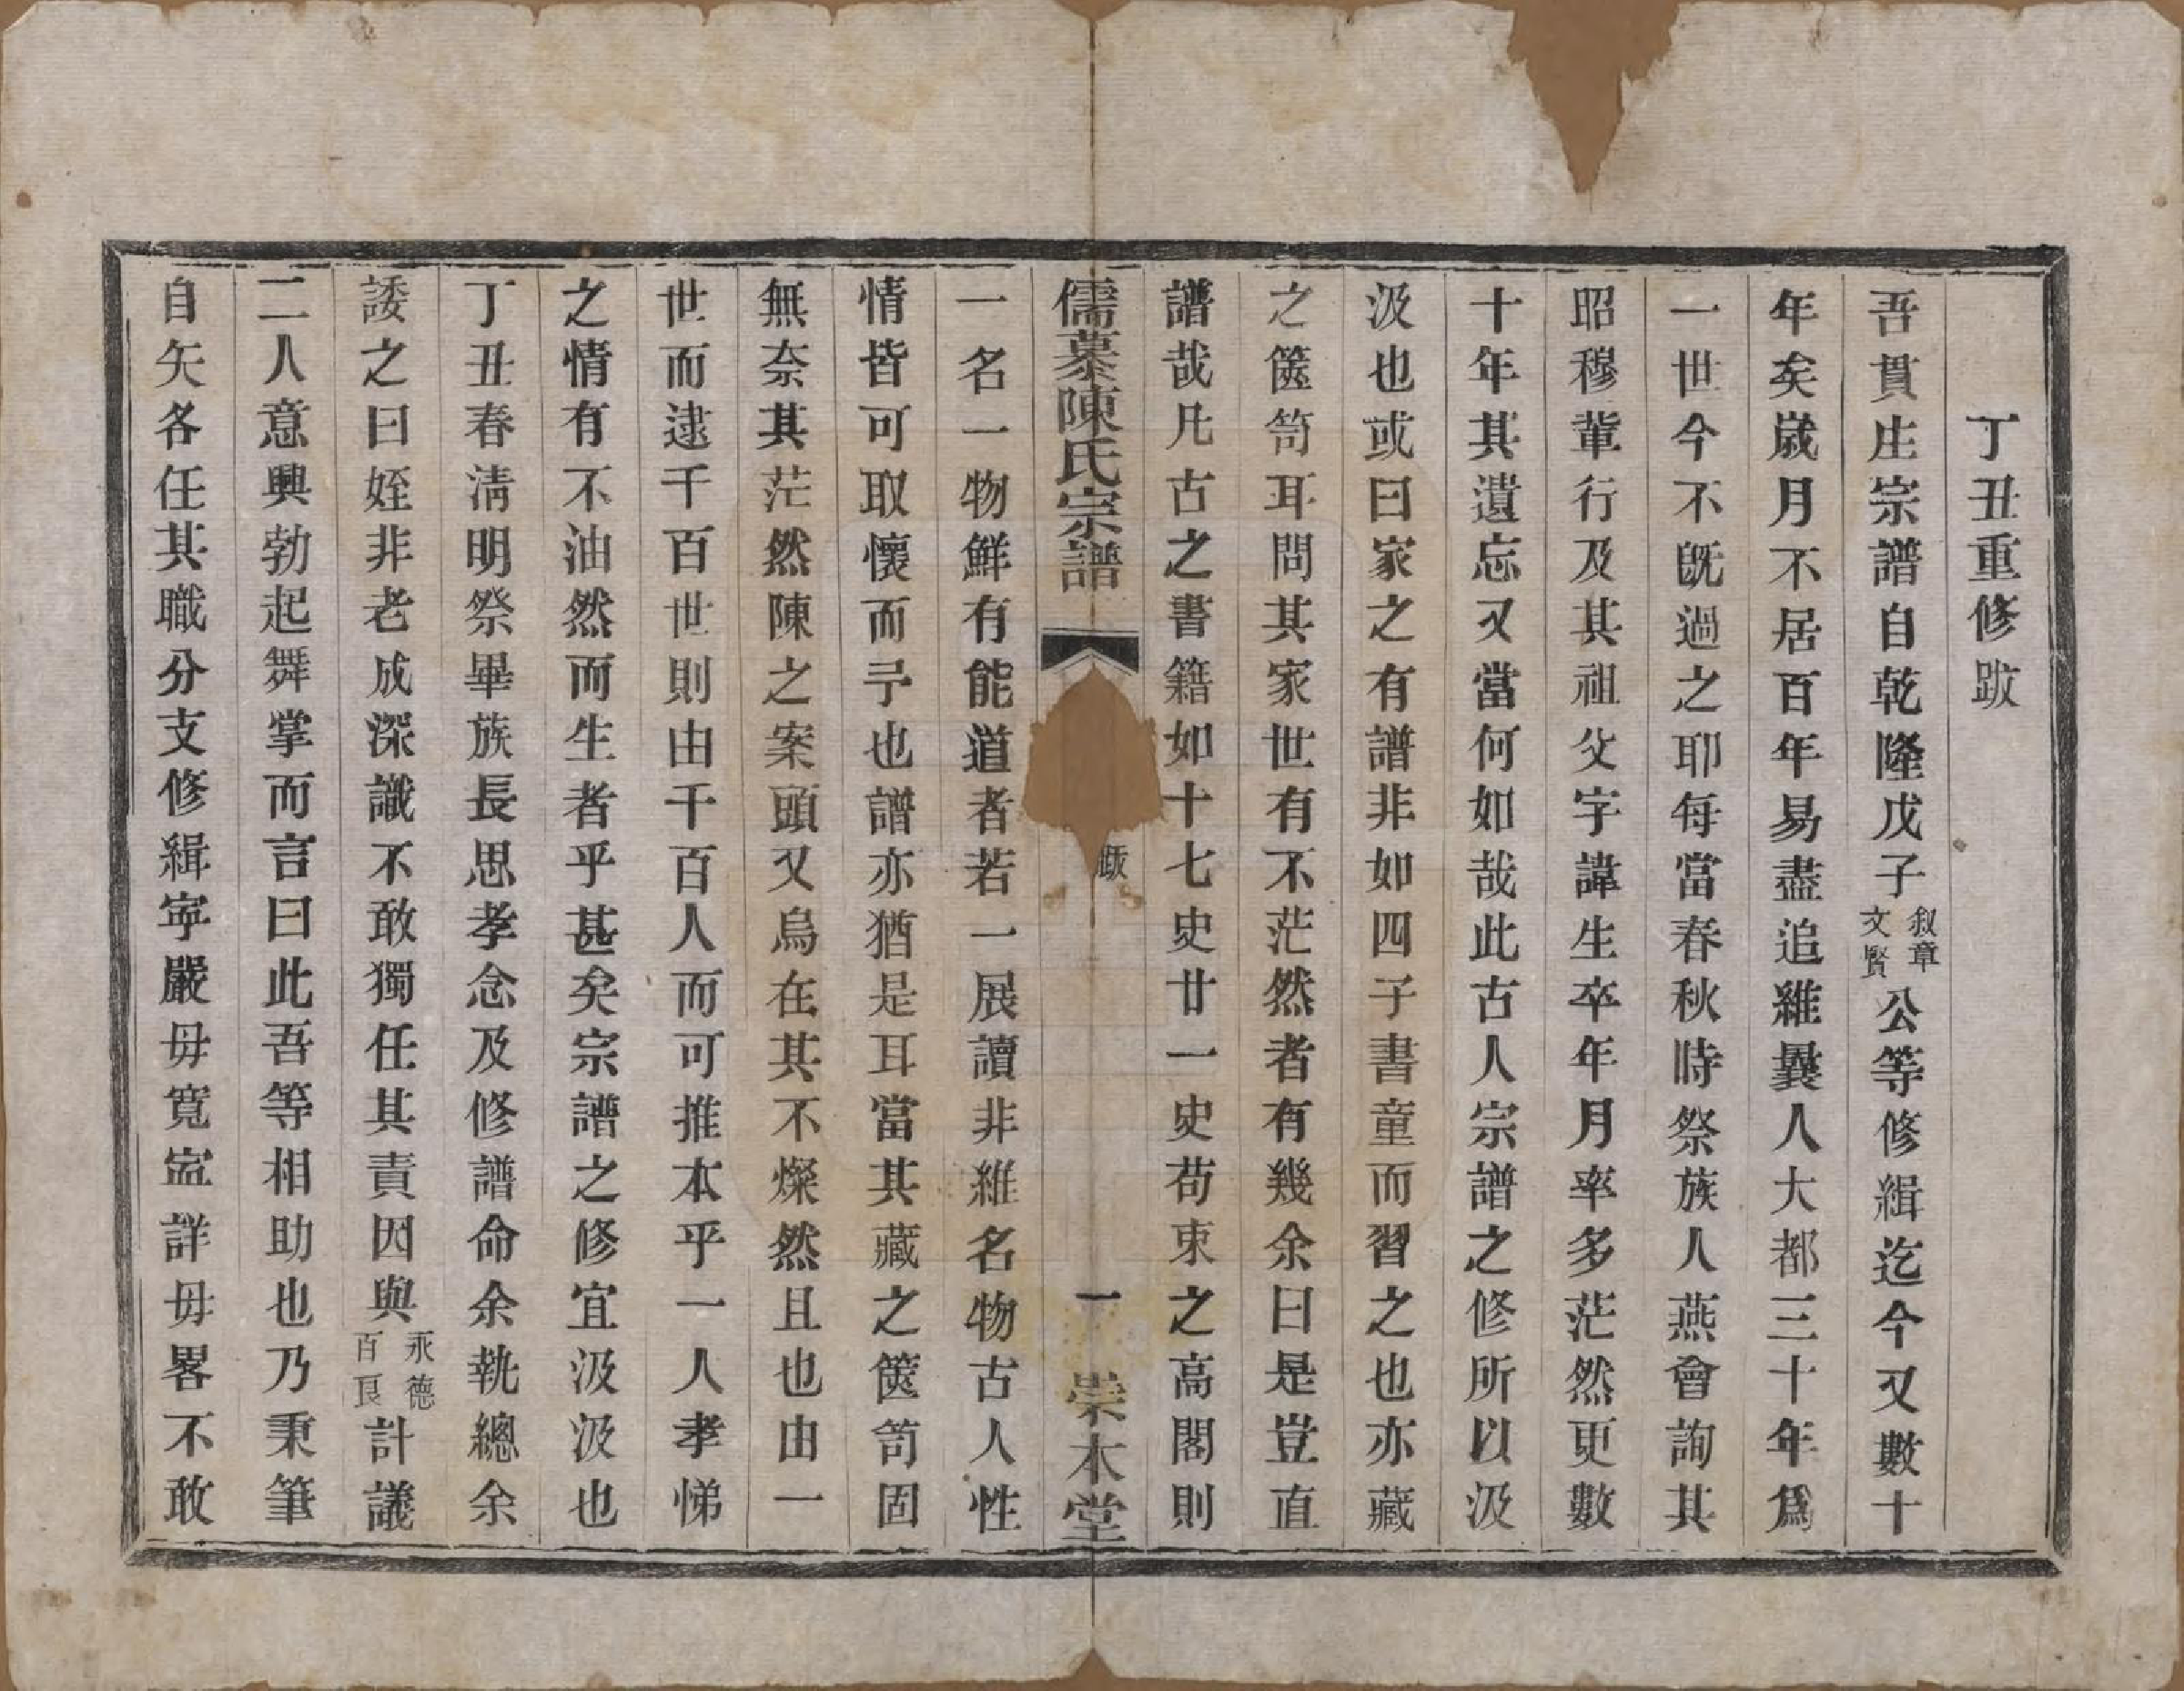 丁丑重修跋
吾貫庄宗譜自乾隆戊子叙章文賢公等修緝迄今又數十
年矣歲月不居百年易盡追維曩人大都三十年爲
一世今不旣過之耶每當春秋時祭族人燕會詢其
昭穆輩行及其祖父字諱生卒年月率多茫然更數
十年其遺忘又當何如哉此古人宗譜之修所以汲
汲也或曰家之有譜非如四子書童而習之也亦藏
之篋笥耳問其家世有不茫然者有幾余曰是豈直
譜哉凡古之書籍如十七史廿一史苟束之高閣則
儒慕陳氏宗譜
跋
一
崇本堂
一名一物鮮有能道者若一展讀非維名物古人性
情皆可取懷而予也譜亦猶是耳當其藏之篋笥固
無奈其茫然陳之案頭又烏在其不燦然且也由一
世而逮千百世則由千百人而可推本乎一人孝悌
之情有不油然而生者乎甚矣宗譜之修宜汲汲也
丁丑春淸明祭畢族長思孝念及修譜命余執總余
諉之曰姪非老成深識不敢獨任其責因與永德百良計議
二人意興勃起舞掌而言曰此吾等相助也乃秉筆
自矢各任其職分支修緝寧嚴毋寬寍詳毋畧不敢